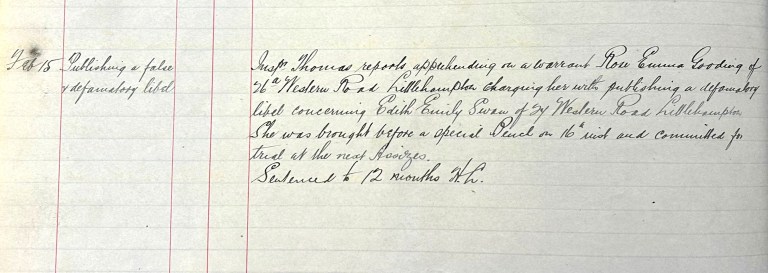 Feb 15 Publishing a false
& defamatory libel
Inspr. Thomas reports apprehending on a warrant Rose Emma Gooding of
26a Western Road Littlehampton charging her with publishing a defamatory
libel concerning Edith Emily Swan of 24 Western Road Littlehampton
She was brought before a special Bench on 16th inst and committed for
trial at the next Assizes.
Sentenced to 12 months H.L.